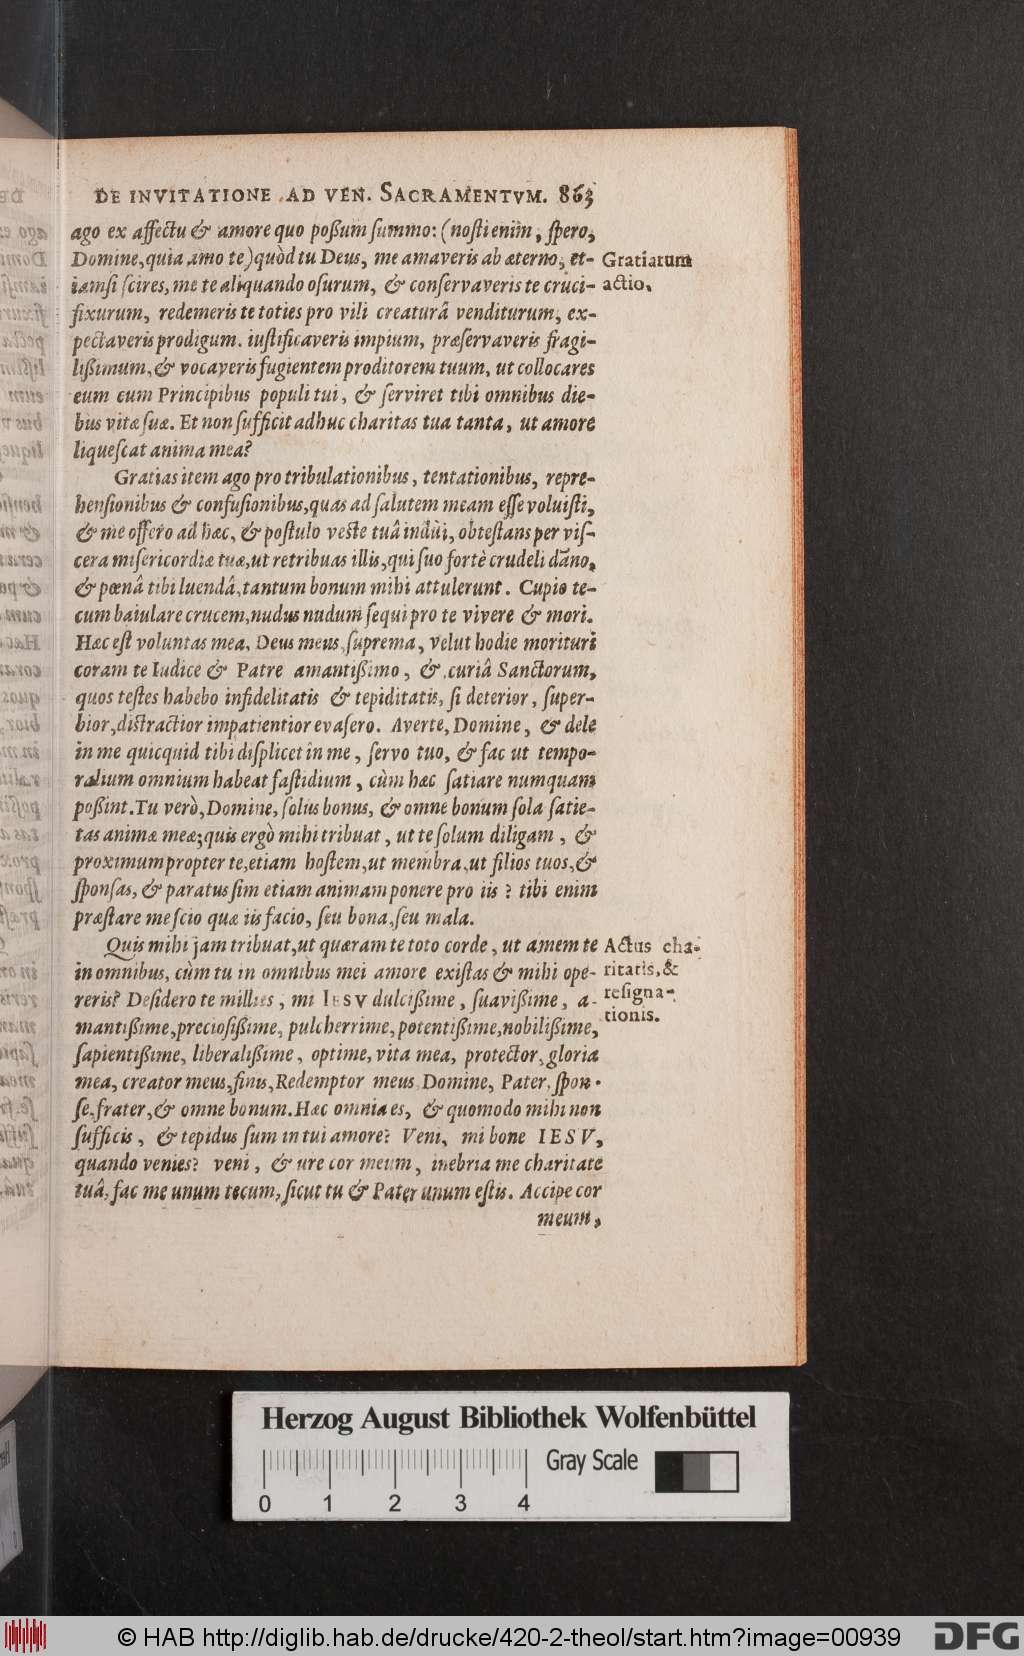 DE INVITATIONE AD VEN. SACRAMENTVM. 863
ago ex affectu & amore quo poßum summo: (nosti enim, spero,
Domine, quia amo te) quòd tu Deus, me amaveris ab æterno, et-
iamsi scires, me te aliquando osurum, & conservaveris te cruci-
fixurum, redemeris te toties pro vili creaturâ venditurum, ex-
pectaveris prodigum. iustificaveris impium, præservaveris fragi-
lißimum, & vocaveris fugientem proditorem tuum, ut collocares
eum cum Principibus populi tui, & serviret tibi omnibus die-
bus vitæ suæ. Et non sufficit adhuc charitas tua tanta, ut amore
liquescat anima mea?
Gratiarum
actio.
Gratias item ago pro tribulationibus, tentationibus, repre-
hensionibus & confusionibus, quas ad salutem meam esse voluisti,
& me offero ad hæc, & postulo veste tuâ indui, obtestans per vis-
cera misericordiæ tuæ, ut retribuas illis, qui suo fortè crudeli dãno,
& pœnâ tibi luendâ, tantum bonum mihi attulerunt. Cupio te-
cum baiulare crucem, nudus nudum sequi pro te vivere & mori.
Hæc est voluntas mea, Deus meus, suprema, velut hodie morituri
coram te Iudice & Patre amantißimo, & curiâ Sanctorum,
quos testes habebo infidelitatis & tepiditatis, si deterior, super-
bior, distractior impatientior evasero. Averte, Domine, & dele
in me quicquid tibi displicet in me, servo tuo, & fac ut tempo-
ralium omnium habeat fastidium, cùm hæc satiare numquam
poßint. Tu verò, Domine, solus bonus, & omne bonum sola satie-
tas animæ meæ; quis ergò mihi tribuat, ut te solum diligam, &
proximum propter te, etiam hostem, ut membra, ut filios tuos, &
sponsas, & paratus sim etiam animam ponere pro iis? tibi enim
præstare me scio quæ iis facio, seu bona, seu mala.
Quis mihi jam tribuat, ut quæram te toto corde, ut amem te
in omnibus, cùm tu in omnibus mei amore existas & mihi ope-
reris? Desidero te millies, mi IESV dulcißime, suavißime, a-
mantißime, preciosißime, pulcherrime, potentißime, nobilißime,
sapientißime, liberalißime, optime, vita mea, protector, gloria
mea, creator meus, finis, Redemptor meus Domine, Pater, spon-
se, frater, & omne bonum. Hæc omnia es, & quomodo mihi non
sufficis, & tepidus sum in tui amore? Veni, mi bone IESV,
quando venies? veni, & ure cor meum, inebria me charitate
tuâ, fac me unum tecum, sicut tu & Pater unum estis. Accipe cor
meum,
Actus cha-
ritatis, &
resigna-
tionis.
Herzog August Bibliothek Wolfenbüttel
Gray Scale
0 1 2 3 4
© HAB http://diglib.hab.de/drucke/420-2-theol/start.htm?image=00939
DFG